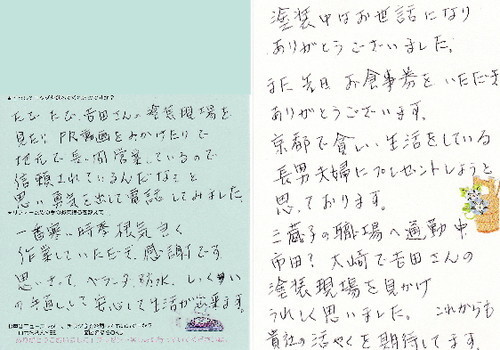 たびたび、吉田さんの塗装現場を
見たり PR漫画をみかけたりで
地元で長い間営業しているので
信頼されているんだなぁと
思い勇気を出して電話してみました。
一番寒い時季根気良く
作業していただき、感謝です
思いきって、ベランダ防水、しっくい
の手直しして安心して生活が出来ます。
塗装中はお世話になり
ありがとうございました。
また先日 お食事券をいただき
ありがとうございます。
京都で貧しい生活をしている
長男夫婦にプレゼントしようと
思っております。
三蔵子の職場へ通勤中
市田? 大崎で吉田さんの
塗装現場を見かけ
うれしく思いました。これからも
貴社の活やくを期待してます。